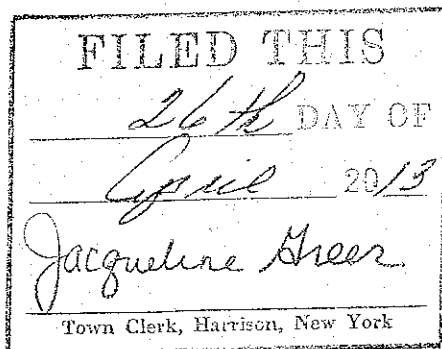 FILED THIS
26th DAY OF
April 2013
Jacqueline Greer
Town Clerk, Harrison, New York